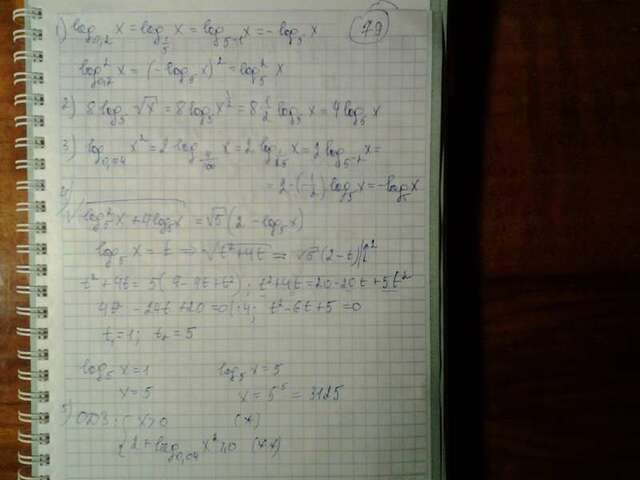 1) log₀,₂ x = log_{1/5} x = log_{5⁻¹} x = -log₅ x (79)
log²₀,₂ x = (-log₅ x)² = log²₅ x
2) 8 log₅ √x = 8 log₅ x^{1/2} = 8·1/2 log₅ x = 4 log₅ x
3) log₀,₀₄ x² = 2 log x = 2 log x = 2 log_{5⁻²} x =
= 2·(-1/2)·log₅ x = -log₅ x
4) √(log₅² x + 4 log₅ x) = √5 (2 - log₅ x)
log₅ x = t ⇒ √(t² + 4t) = √5 (2 - t) |↑²
t² + 4t = 5(4 - 4t + t²); t² + 4t = 20 - 20t + 5t²
4t² - 24t + 20 = 0 |:4; t² - 6t + 5 = 0
t₁ = 1; t₂ = 5
log₅ x = 1 log₅ x = 5
x = 5 x = 5⁵ = 3125
5) ОДЗ: { x > 0 (*)
{ 2 + log₀,₀₄ x² ≥ 0 (**)